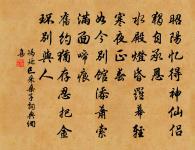 昭陽記得神仙侶
獨自承恩
水殿燈昏羅幕輕
寒夜正春
如今別館添蕭索
滿面啼痕
舊約猶存忍把金
環別與人
馮延巳采桑子詞